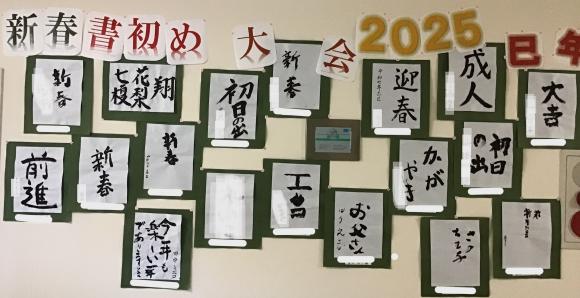 新春書初め大会 2025 巳年
新春
花梨
翔
七榎
初日の出
新春
迎春
成人
大吉
前進
新春
新春
工
お父さん
かがやき
初日
の出
今年も
楽しい一年
でありますように